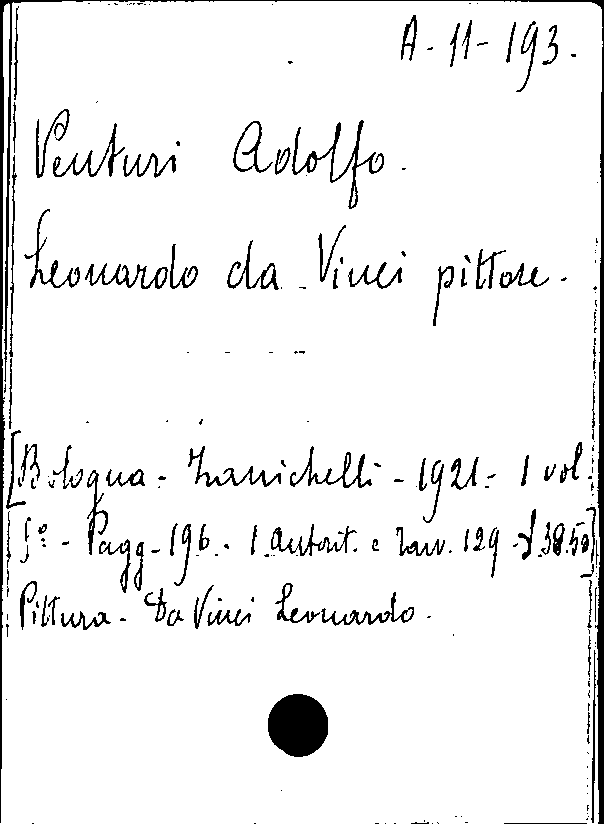 A-11-193.
Venturi Adolfo.
Leonardo da Vinci pittore.
[Bologna - Zanichelli - 1921 - 1 vol.
f° - Pagg - 196 - 1 autorit. e tav. 129 - £ 38.50]
Pittura - Da Vinci Leonardo.